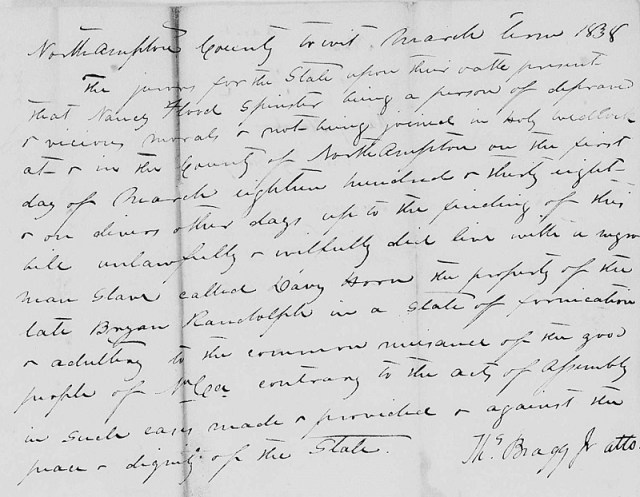 Northampton County to wit March term 1838
The jurors for the State upon their oathe present
that Nancy Flood Spinster being a person of depraved
& vicious morals & not being joined in Holy wedlock
at & in the County of Northampton on the first
day of March eighteen hundred & thirty eight
& on divers other days up to the finding of this
bill unlawfully & wilfully did live with a negro
man slave called Davy Horn the property of the
late Bryan Randolph in a state of fornication
& adultery to the common nuisance of the good
people of sd Co. contrary to the acts of Assembly
in such cases made & provided & against the
peace & dignity of the State.
Thos Bragg Jr atto.